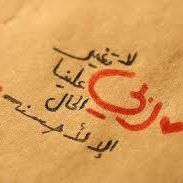 لا تغير
علينا
ربي
الحال
إلا لأحسنه